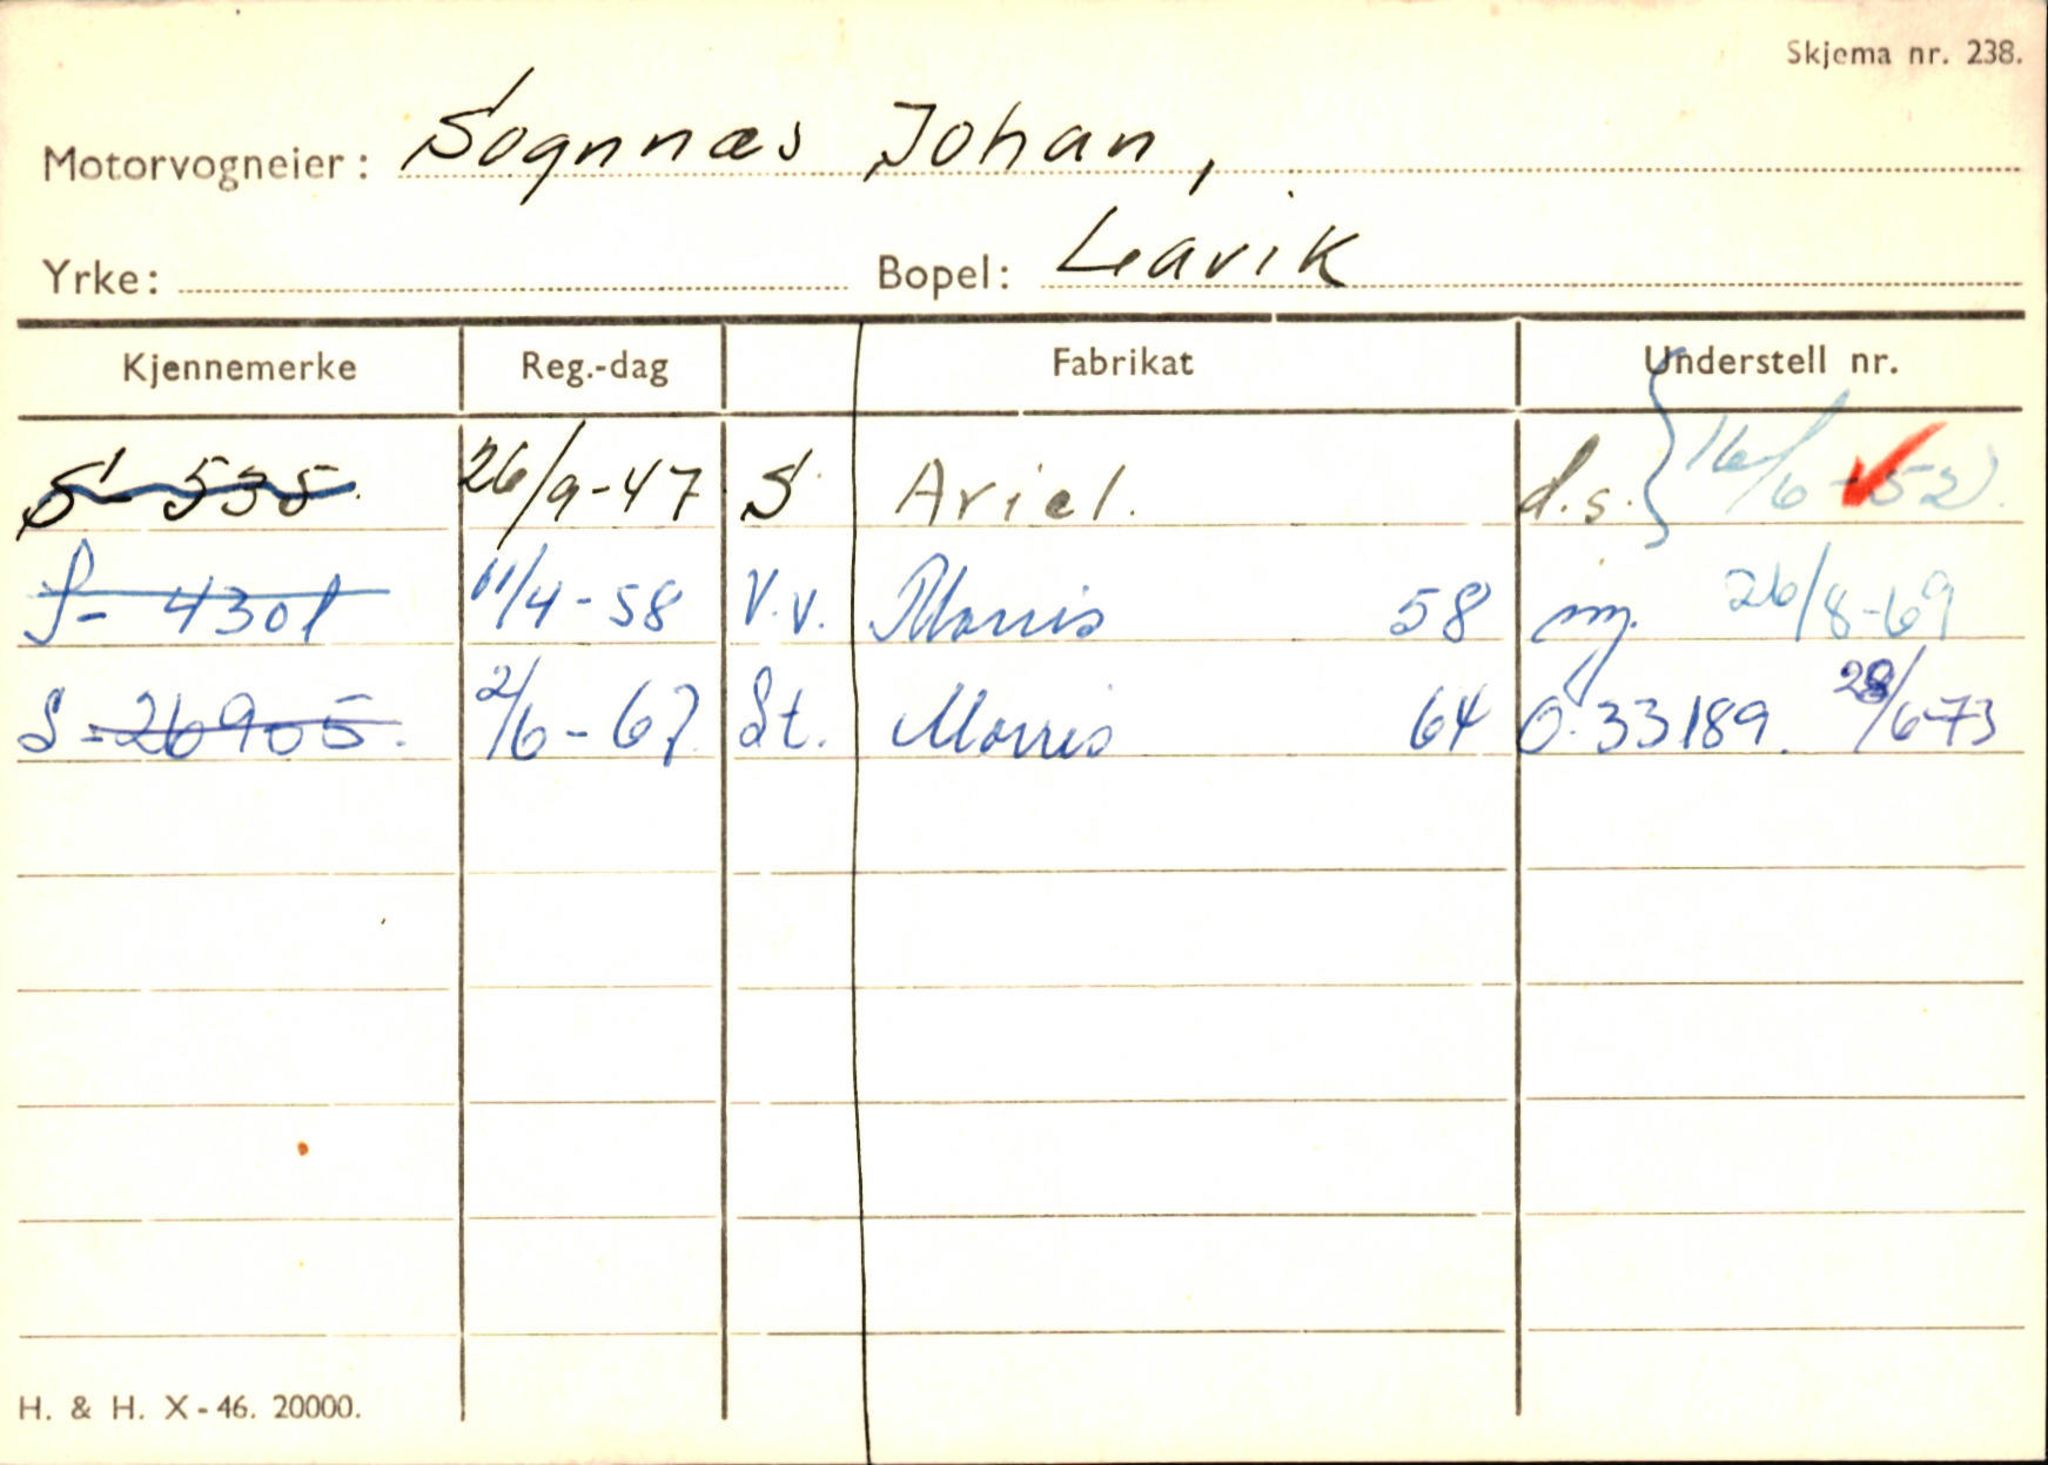 Skjema nr. 238.
Motorvogneier: Sognnæs Johan,
Yrke: Bopel: Leavik
Kjennemerke Reg.-dag Fabrikat Understell nr.
S-535. 26/9-47 S Ariel. d.s. 16/6-52
S-4301 11/4-58 V.v. Morris 58 26/8-69
S-26905. 2/6-67 St. Morris 64 0.33189. 28/6-73
H. & H. X-46. 20000.